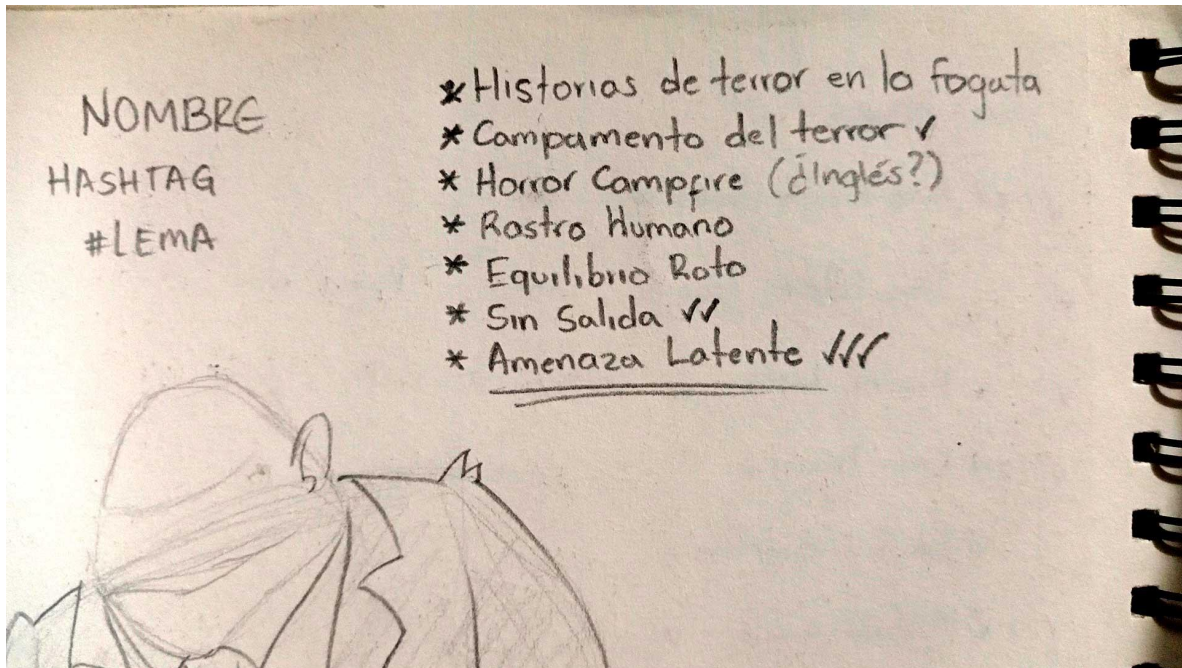 NOMBRE
HASHTAG
#LEMA
* Historias de terror en la fogata
* Campamento del terror ✓
* Horror Campfire (¿Inglés?)
* Rostro Humano
* Equilibrio Roto
* Sin Salida ✓✓
* Amenaza Latente ✓✓✓